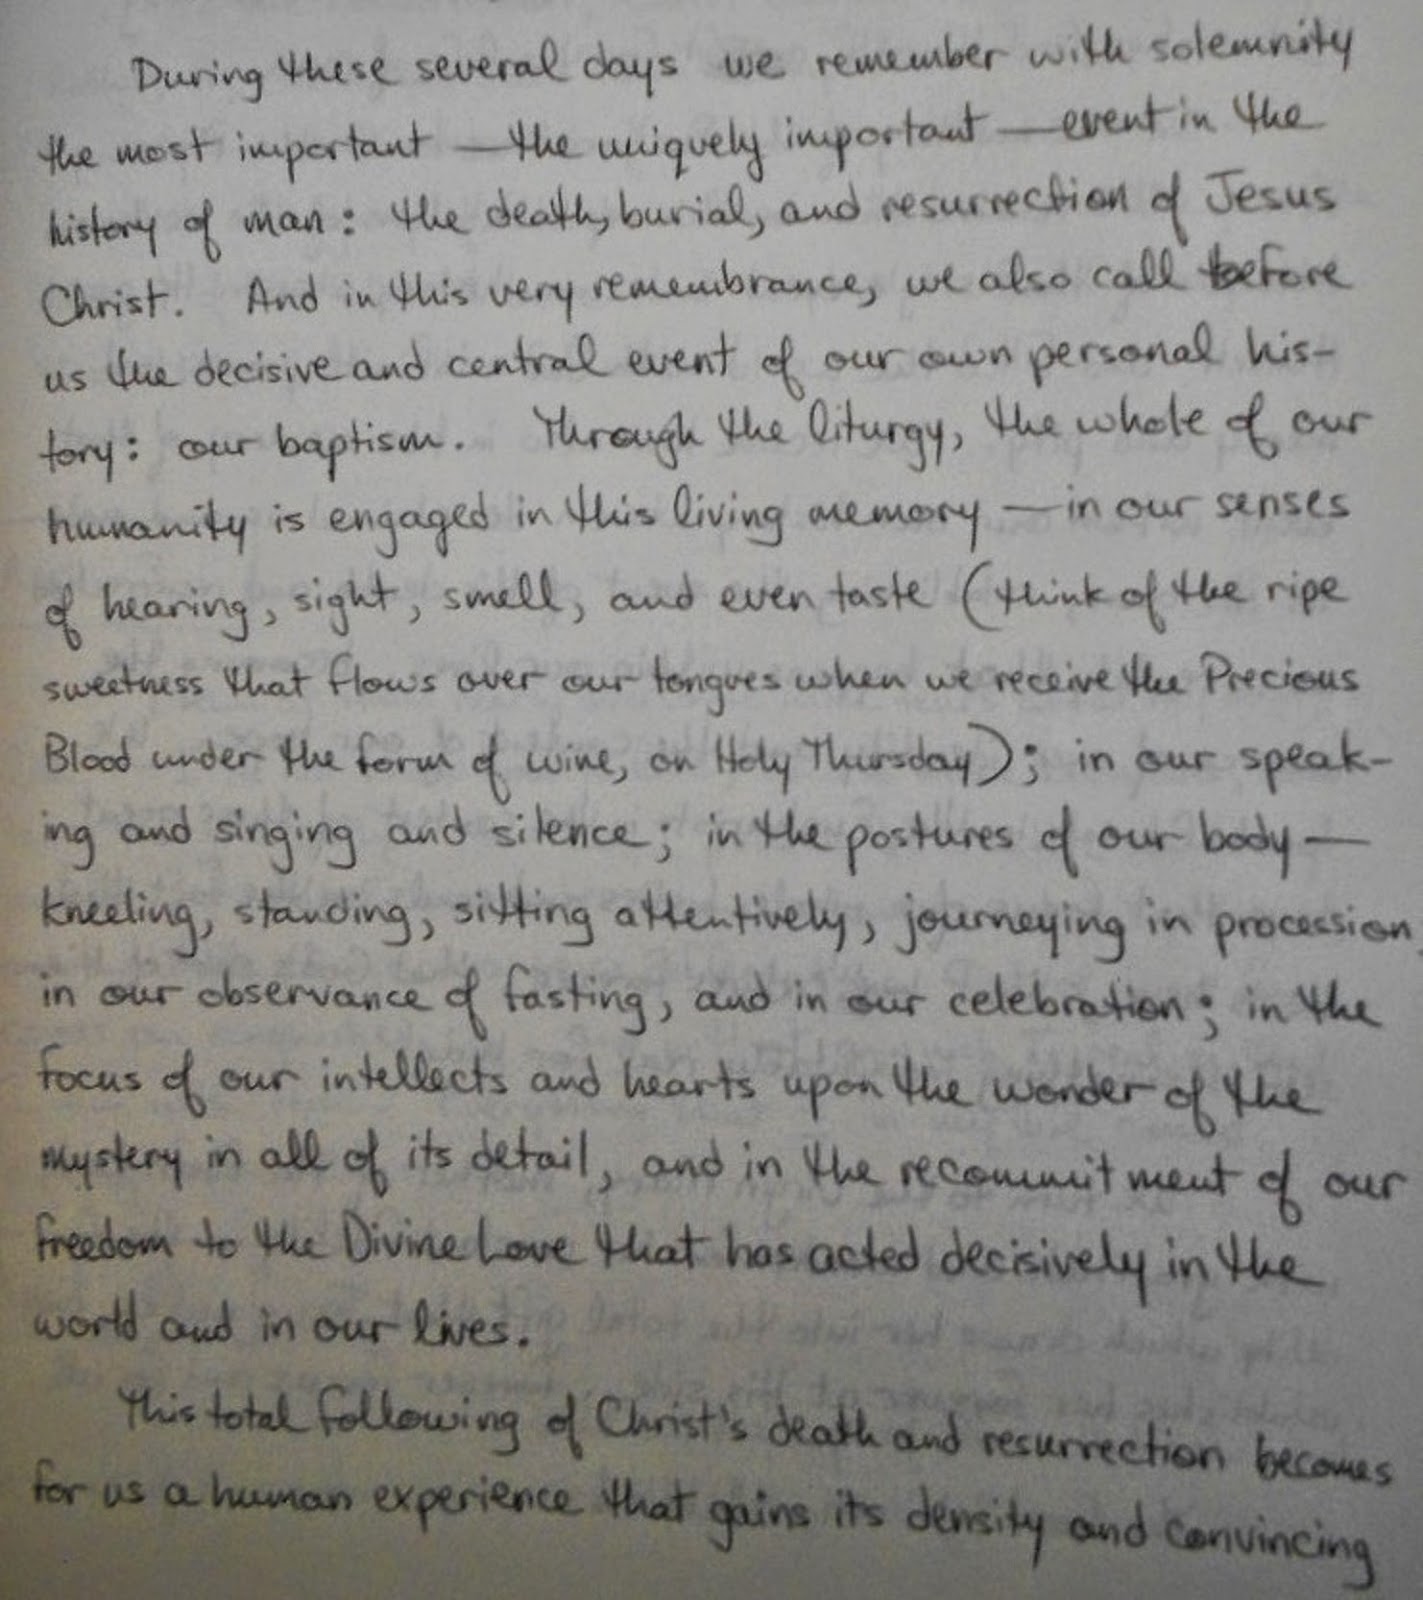 During these several days we remember with solemnity
the most important — the uniquely important — event in the
history of man: the death, burial, and resurrection of Jesus
Christ. And in this very remembrance, we also call before
us the decisive and central event of our own personal his-
tory: our baptism. Through the liturgy, the whole of our
humanity is engaged in this living memory — in our senses
of hearing, sight, smell, and even taste (think of the ripe
sweetness that flows over our tongues when we receive the Precious
Blood under the form of wine, on Holy Thursday); in our speak-
ing and singing and silence; in the postures of our body —
kneeling, standing, sitting attentively, journeying in procession,
in our observance of fasting, and in our celebration; in the
focus of our intellects and hearts upon the wonder of the
mystery in all of its detail, and in the recommitment of our
freedom to the Divine Love that has acted decisively in the
world and in our lives.
This total following of Christ's death and resurrection becomes
for us a human experience that gains its density and convincing